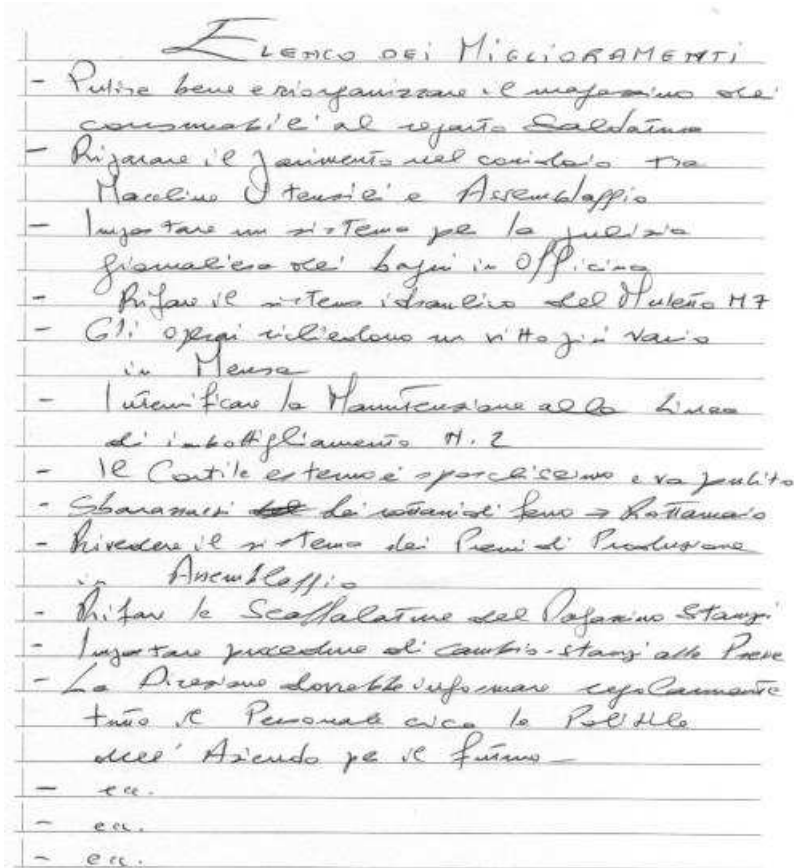 Elenco dei Miglioramenti
- Pulire bene e riorganizzare il magazzino dei
consumabili al reparto Saldatura
- Riparare il pavimento nel corridoio tra
Macchine Utensili e Assemblaggio
- Impostare un sistema per la pulizia
giornaliera dei bagni in Officina
- Rifare il sistema idraulico del Muletto M7
- Gli operai richiedono un vitto più vario
in Mensa
- Intensificare la Manutenzione alla Linea
di imbottigliamento N. 2
- Il Cortile esterno è sporchissimo e va pulito
- Sbarazzarsi dei rottami di ferro → Rottamaio
- Rivedere il sistema dei Premi di Produzione
in Assemblaggio
- Rifare le Scaffalature del Magazzino Stampi
- Impostare procedure di cambio-stampi alle Presse
- La Direzione dovrebbe informare regolarmente
tutto il Personale circa le Politiche
dell'Azienda per il futuro
- ecc.
- ecc.
- ecc.